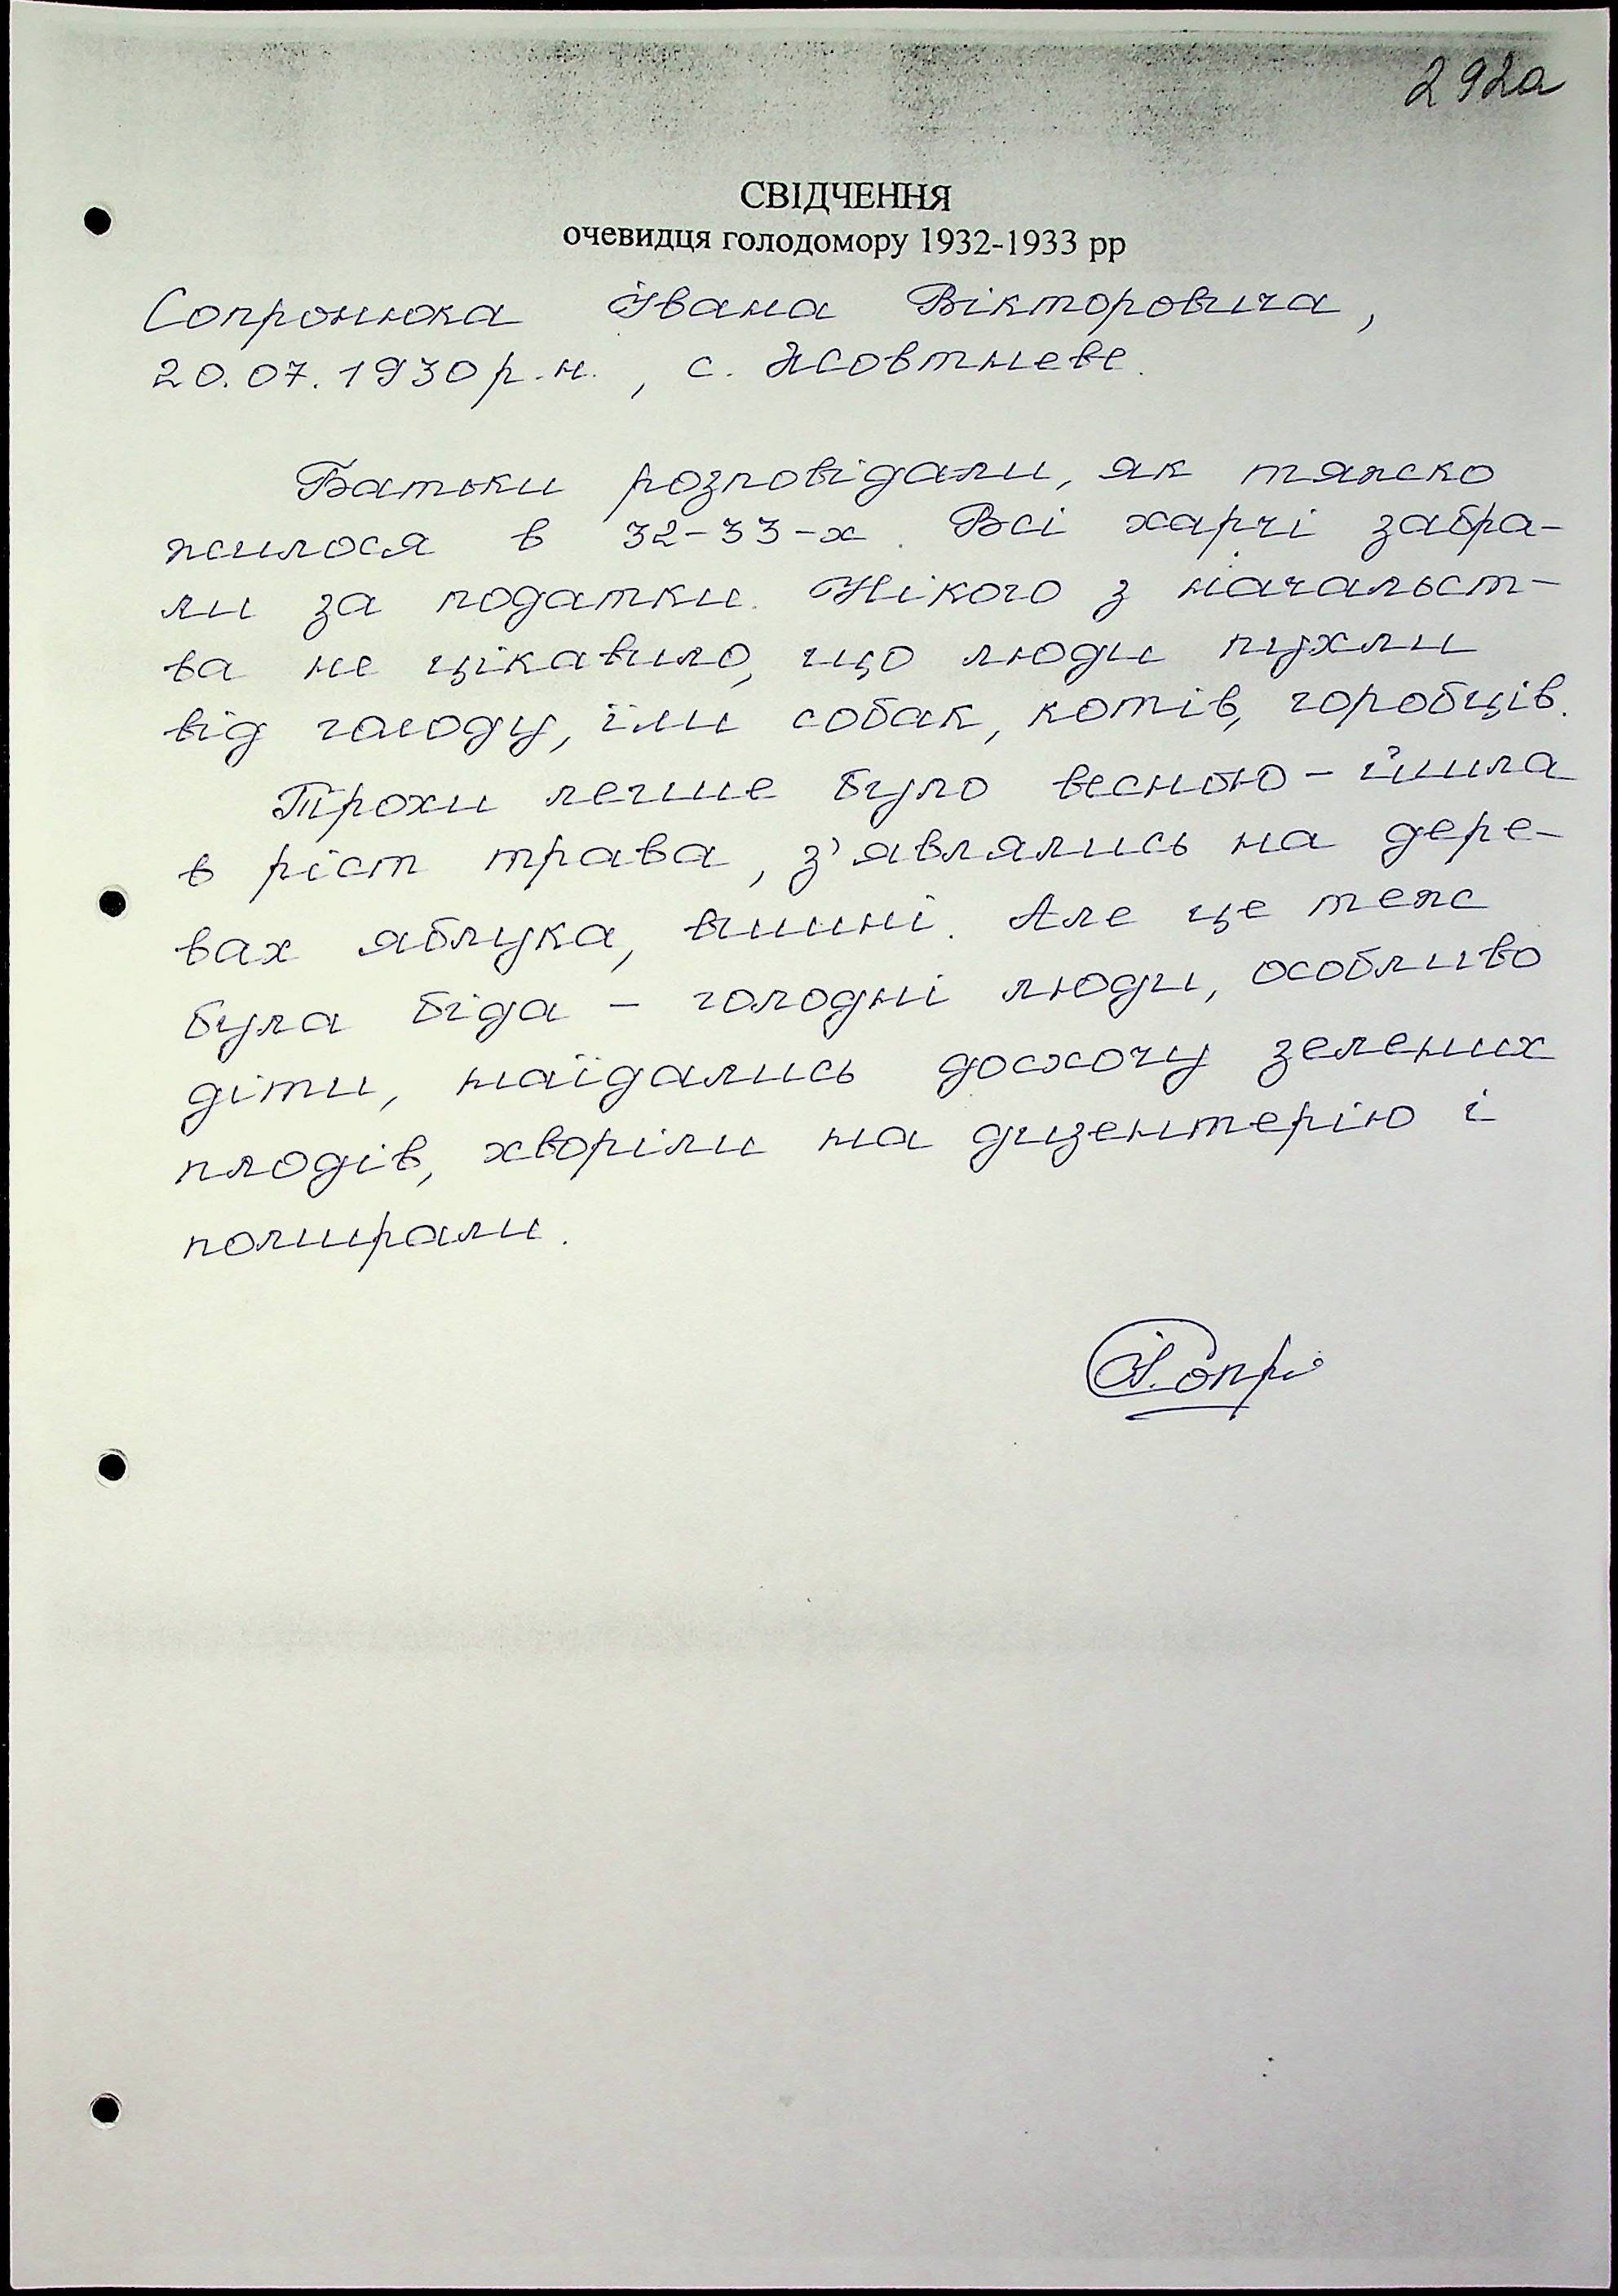 292а
СВІДЧЕННЯ
очевидця голодомору 1932-1933 рр
Сопронюка Івана Вікторовича,
20.07.1930 р.н., с. Жовтневе.
Батьки розповідали, як тяжко
жилося в 32-33-х. Всі харчі забра-
ли за податки. Нікого з начальст-
ва не цікавило, що люди пухли
від голоду, їли собак, котів, горобців.
Трохи легше було весною - йшла
в ріст трава, з'являлись на дере-
вах яблука, вишні. Але це теж
була біда - голодні люди, особливо
діти, наїдались досхочу зелених
плодів, хворіли на дизентерію і
помирали.